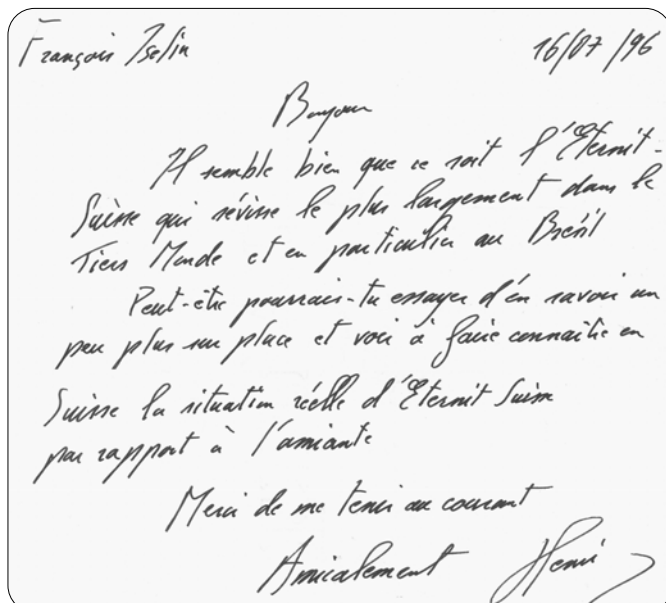 François Iselin 16/07/96
Bonjour
Il semble bien que ce soit l'Éternit-
Suisse qui sévisse le plus largement dans le
Tiers Monde et en particulier au Brésil
Peut-être pourrais-tu essayer d'en savoir un
peu plus sur place et voir à faire connaître en
Suisse la situation réelle d'Eternit Suisse
par rapport à l'amiante
Merci de me tenir au courant
Amicalement Henri